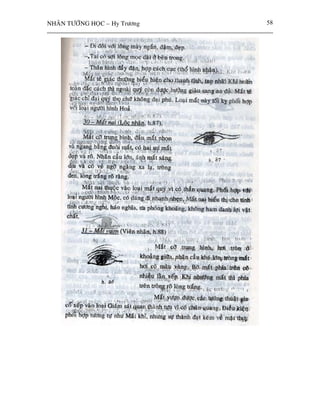 NHÂN TƯỚNG HỌC – Hy Trương 58
– Đi đôi với lông mày ngắn, đậm, đẹp.
– Tai có sợi lông mọc dài ở bên trong.
– Thân hình đầy đặn, hợp cách cục (ngũ hình nhân).
Mắt tê giác thường biểu hiện cho thanh tĩnh, tạp nhất! Khi hoàn
toàn đắc cách thì ngoài quý còn được hưởng giàu sang an dật. Mắt tê
giác chỉ đại quý thọ chứ không đại phú. Loại mắt này tối kỵ phối hợp
với loại người hình Hoả.
30 – Mắt nai (Lộc nhãn, h.87).
Mắt cỡ trung bình, đầu mắt nhọn
và ngang bằng đuôi mắt, có hai mí mắt
đẹp và rõ. Nhãn cầu lớn, ánh mắt sáng
dịu và có vẻ ngỡ ngàng xa lạ, tròng
đen, lòng trắng rõ ràng.
h. 87
Mắt nai thuộc vào loại mắt quý vì có thần quang. Phối hợp với
loại người hình Mộc, có dáng đi nhanh nhẹn, Mắt nai biểu thị cho tính
tình cương nghị, hào nghĩa, ưa phóng khoáng, không ham danh lợi vật
chất.
31 – Mắt vượn (Viên nhãn, h.88)
Mắt cỡ trung bình, hơi tròn ở
khoảng giữa, nhãn cầu khá lớn, tròng mắt
hơi có màu vàng. Bờ mắt phía trên có
nhiều lằn xếp. Khi nhướng mắt thì phía
trên tròng rõ lòng trắng.
h. 88
Mắt vượn được các tướng thuật gia
cổ xếp vào loại Giám sát quan thành tựu vì có chân quang. Điều kiện
phối hợp tương tự như Mắt khỉ, nhưng sự thành đạt kém về mặt thực